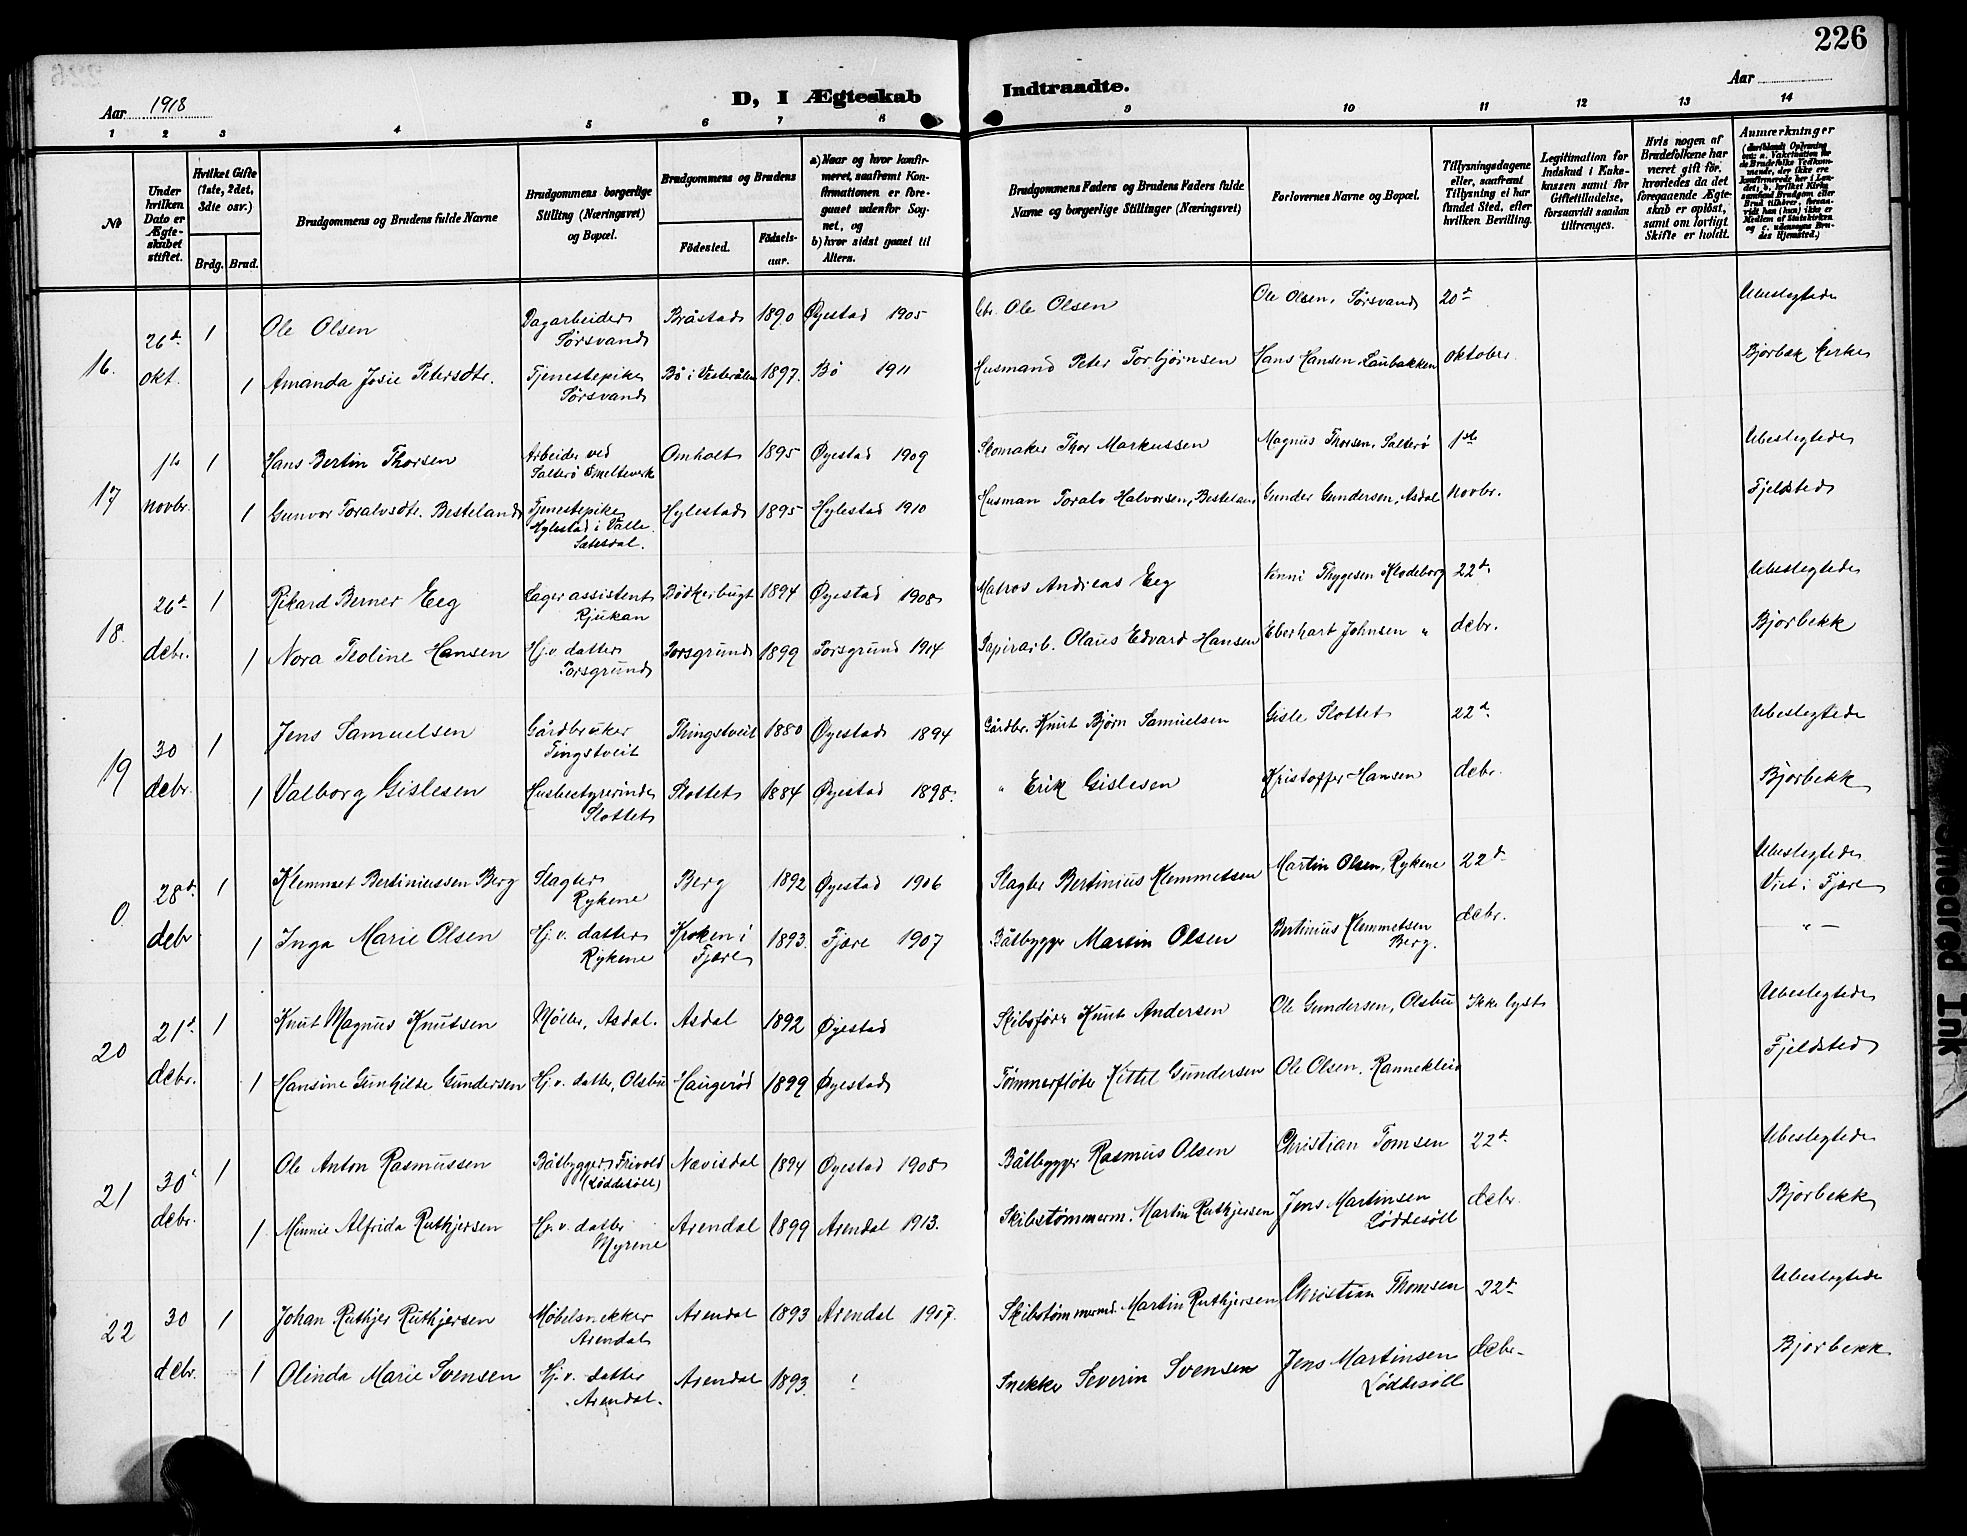 226
Aar 1918
D, I Ægteskab Indtraadte.
Aar
1 2 3 4 5 6 7 8 9 10 11 12 13 14
№
Under hvilken Dato er Ægteskabet stiftet.
Hvilket Gifte (1ste, 2det, 3die osv.)
Brdg. Brud.
Brudgommens og Brudens fulde Navne
Brudgommens borgerlige Stilling (Næringsvei) og Bopæl.
Brudgommens og Brudens
Födested. Födselsaar.
a) Naar og hvor konfirmeret, saafremt Konfirmationen er foregaaet udenfor Sognet, og
b) hvor sidst gaaet til Alters.
Brudgommens Faders og Brudens Faders fulde Navne og borgerlige Stillinger (Næringsvei)
Forlovernes Navne og Bopæl.
Tillysningsdagene eller, saafremt Tillysning ei har fundet Sted, efter hvilken Bevilling.
Legitimation for Indskud i Enkekassen samt for Giftetilladelse, forsaavidt saadan tiltrænges.
Hvis nogen af Brudefolkene har været gift før, hvorledes da det foregaaende Ægteskab er opløst, samt om lovligt Skifte er holdt.
Anmærkninger
16. 26d. okt. 1 Ole Olsen Dagarbeider Törsvand Bråstad 1890 Øyestad 1905 Ole Olsen Ole Olsen, Törsvand 20d oktober. Ubeslegtede
1 Amanda Josie Petersdtr. Tjenestepike Törsvand Bö i Vesterålen 1897. Bö 1911 Husmand Peter Torbjørnsen Hans Hansen, Laubakken Bjorbæk kirke
17 1ste novbr. 1 Hans Bertin Thorsen Arbeider ved Salterö Smelteverk Omholt 1895 Øyestad 1909 Skomaker Thor Markussen Magnus Thorsen, Salterö 1ste novbr. Ubeslegtede
1 Gunvor Toralvsdtr. Besteland Tjenestepike Hylestad i Valle Sætesdal. Hylestad 1895 Hylestad 1910 Husman Toralv Halvorsen, Besteland Gunder Gundersen, Asdal Fjeldsted
18. 26d. debr. 1 Rikard Berner Eeg Lagerassistent Rjukan Bödkerbugt 1894 Øyestad 1908 Matros Andreas Eeg Vinni Thygesen Klodeborg 22d. debr. Ubeslegtede
1 Nora Teoline Hansen Hj.v. datter Porsgrund Porsgrund 1899 Porsgrund 1914 Papirarb. Olaus Edvard Hansen Eberhart Johnsen " Bjorbekk
19 30 debr. 1 Jens Samuelsen Gårdbruker Tingstveit Thingstveit 1880 Øyestad 1894 Gårdbr. Knut Bjørn Samuelsen Gisle Slottet 22d. debr. Ubeslegtede
1 Valborg Gislesen Husbestyrerinde Slottet Slottet 1884 Øyestad 1898. " Erik Gislesen Kristoffer Hansen Bjorbekk
0 28d. debr 1 Klemmet Bertiniussen Berg Slagter Rykene Berg 1892 Øyestad 1906 Slagter Bertinius Klemmetsen Martin Olsen, Rykene 22d. debr. Ubeslegtede Viet i Fjære
1 Inga Marie Olsen Hj.v. datter Rykene Kroken i Fjære 1893. Fjære 1907 Båtbygger Martin Olsen Bertinius Klemmetsen Berg. – " –
20 21d. debr. 1 Knut Magnus Knutsen Møller, Asdal. Asdal 1892 Øyestad Skibsfører Knut Andersen Ole Gundersen, Olsbu Ikke lyst Ubeslegtede
1 Hansine Gunhilde Gundersen Hj.v. datter, Olsbu Haugerød 1899 Øyestad Tømmerfløter Kittil Gundersen Ole Olsen, Rannekleiv Fjeldsted
21 30d debr. 1 Ole Anton Rasmussen Båtbygger, Frivold (Løddesöll) Navisdal 1894 Øyestad 1908 Båtbygger Rasmus Olsen Christian Tomsen 22d. debr. Ubeslegtede
1 Minnie Alfrida Ruthjersen Hj.v. datter Myrene Arendal 1899 Arendal 1913. Skibstømmerm. Martin Ruthjersen Jens Martinsen Løddesöll Bjorbekk
22 30 debr. 1 Johan Ruthjer Ruthjersen Møbelsnekker Arendal Arendal 1893 Arendal 1907. Skibstømmermd. Martin Ruthjersen Christian Thomsen 22d. debr. Ubeslegtede
1 Olinda Marie Svensen Hj.v. datter Arendal. Arendal 1893. ! Snekker Severin Svensen Jens Martinsen Løddesöll Bjorbekk
Smeared Ink